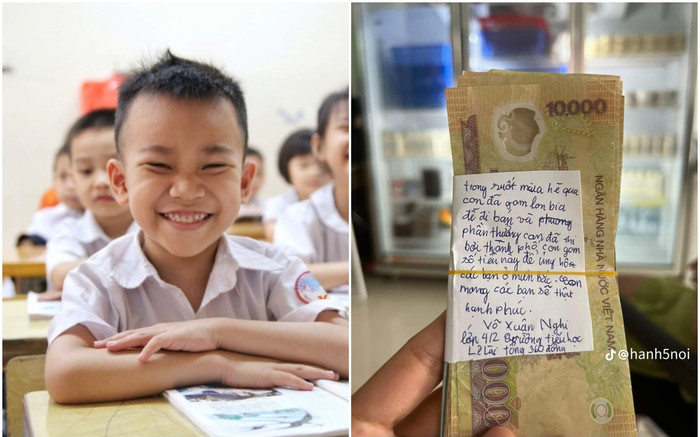 10.000
NGÂN HÀNG NHÀ NƯỚC VIỆT NAM
trong suốt mùa hè qua
con đã gom lon bia
để đi bán và phương
phần thưởng con đã thi
bơi thành phố. con gom
số tiền này để ủng hộ
các bạn ở miền bắc. con
mong các bạn sẽ thật
hạnh phúc.
Võ Xuân Nghi
lớp 4/2 trường tiểu học
Lê Lai tổng 360 đồng
@hanh5noi